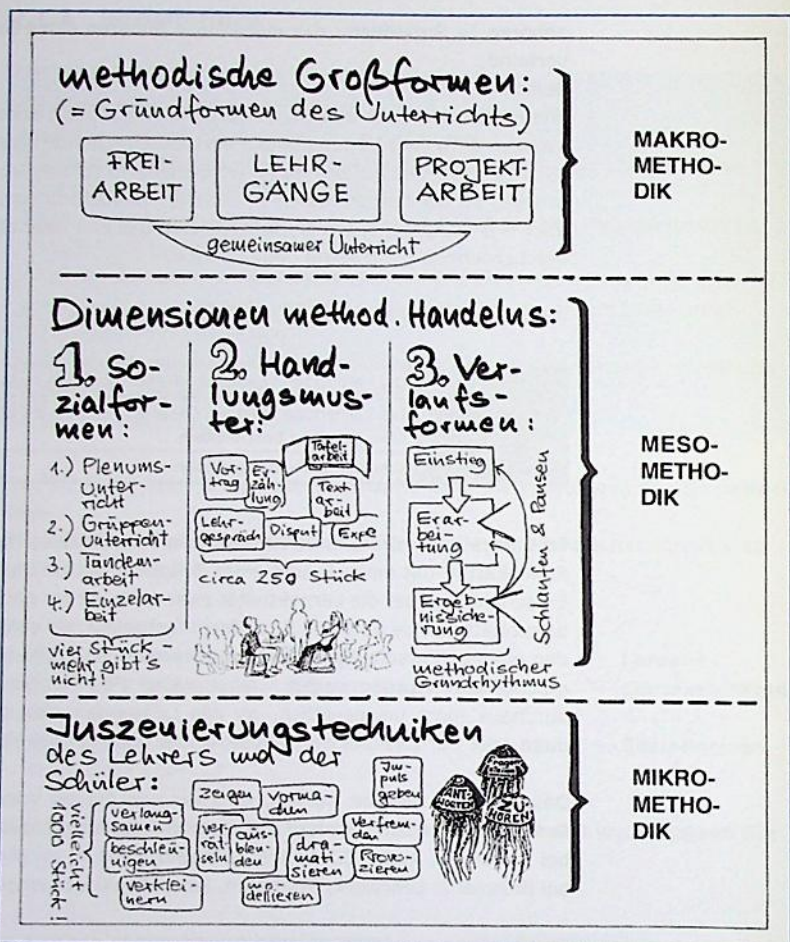 methodische Großformen:
(= Grundformen des Unterrichts)
FREI-
ARBEIT
LEHR-
GÄNGE
PROJEKT-
ARBEIT
gemeinsamer Unterricht
MAKRO-
METHO-
DIK
Dimensionen method. Handelns:
1. So-
zialfor-
men:
1.) Plenums-
unter-
richt
2.) Gruppen-
unterricht
3.) Tandem-
arbeit
4.) Einzelar-
beit
vier Stück -
mehr gibt's
nicht!
2. Hand-
lungsmus-
ter:
Vor-
trag
Er-
zäh-
lung
Tafel-
arbeit
Text
ar-
beit
Lehr-
gespräch
Disput
Expe
circa 250 Stück
3. Ver-
laufs-
formen:
Einstieg
Erar-
bei-
tung
Ergeb-
nissiche-
rung
Schlaufen & Pausen
methodischer
Grundrhythmus
MESO-
METHO-
DIK
Inszenierungstechniken
des Lehrers und der
Schüler:
vielleicht
1000 Stück!
verlang-
samen
beschleu-
nigen
verklei-
nern
zeigen
vorma-
chen
ver-
rät-
seln
aus-
blen-
den
mo-
dellieren
dra-
mati-
sieren
Im-
puls
geben
Verfrem-
den
Provo-
zieren
ANT-
WORTEN
ZU-
HÖREN
MIKRO-
METHO-
DIK